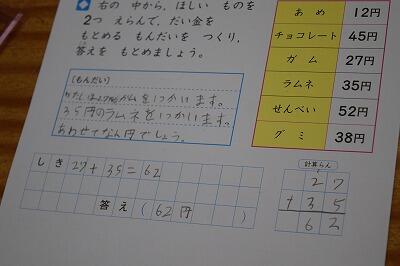 右の 中から、ほしい ものを
2つ えらんで、だい金を
もとめる もんだいを つくり、
答えを もとめましょう。
あめ 12円
チョコレート 45円
ガム 27円
ラムネ 35円
せんべい 52円
グミ 38円
(もんだい)
わたしは27円のガムを1つかいます。
35円のラムネを1つかいます。
あわせてなん円でしょう。
しき 27+35=62
答え (62円)
計算らん
27
+35
62